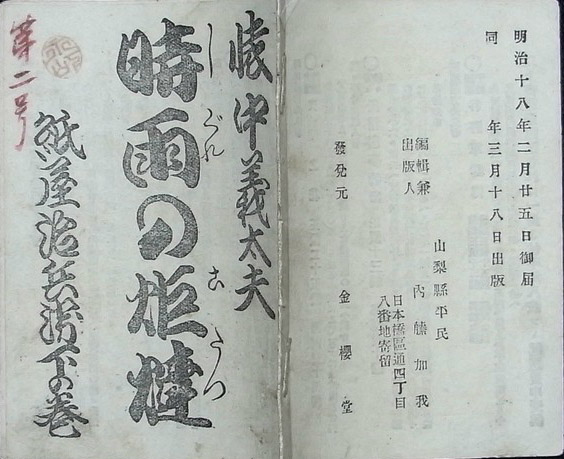 明治十八年二月廿五日御届
同　年三月十八日出版
山梨縣平民
編輯兼
出版人
內藤加我
日本橋區通四丁目
八番地寄留
發兌元　金櫻堂
懐中義太夫
時雨の炬燵
しぐれ　こたつ
紙屋治兵衛下の巻
第二号